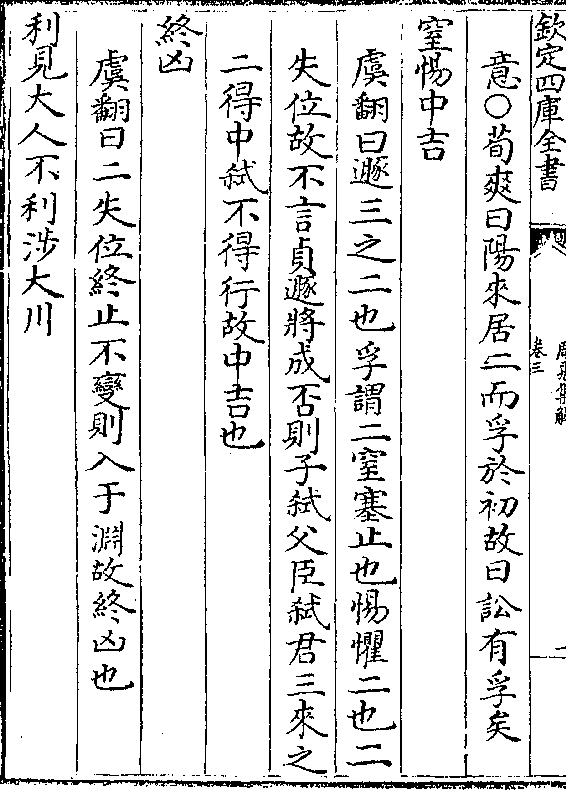 欽定四庫全書
卷三
二
意○荀爽曰陽來居二而孚於初故曰訟有孚矣
窒惕中吉
虞翻曰遯三之二也孚謂二窒塞止也惕懼二也二
失位故不言貞遯將成否則子弑父臣弑君三來之
二得中弑不得行故中吉也
終凶
虞翻曰二失位終止不變則入于淵故終凶也
利見大人不利涉大川